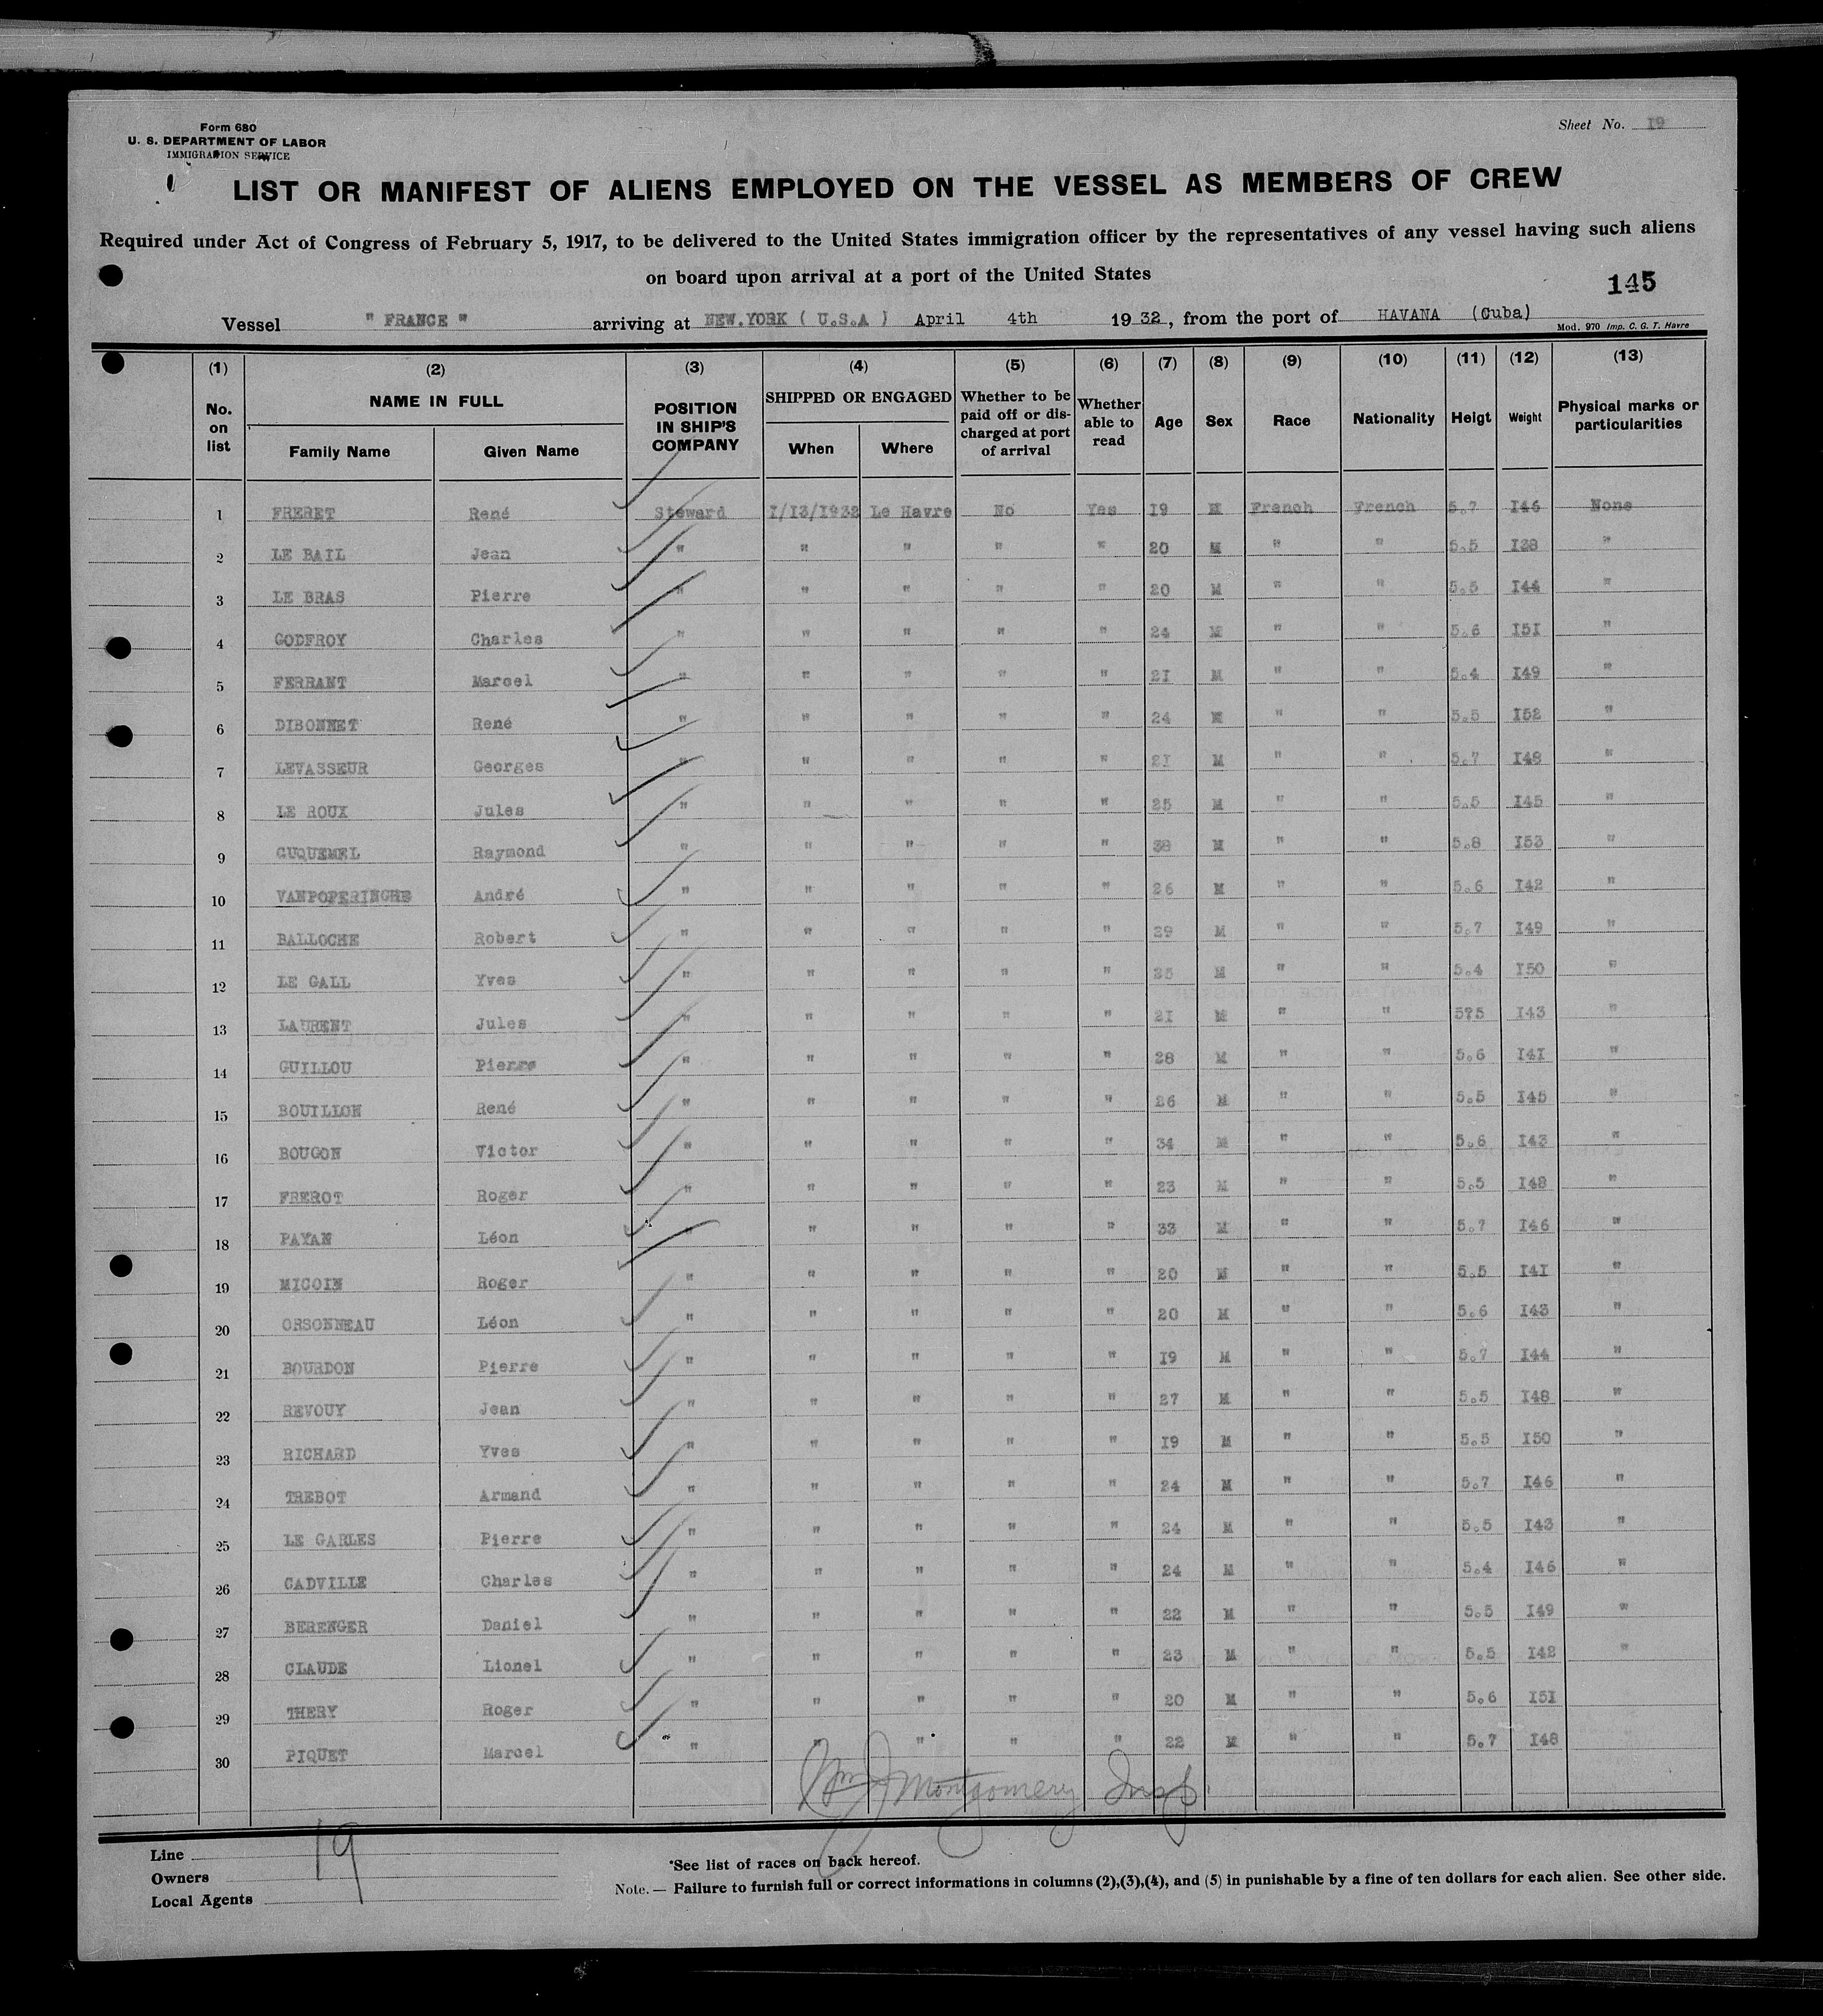 Form 680
U. S. DEPARTMENT OF LABOR
IMMIGRATION SERVICE
Sheet No. 19
LIST OR MANIFEST OF ALIENS EMPLOYED ON THE VESSEL AS MEMBERS OF CREW
Required under Act of Congress of February 5, 1917, to be delivered to the United States immigration officer by the representatives of any vessel having such aliens
on board upon arrival at a port of the United States
145
Vessel " FRANCE " arriving at NEW.YORK ( U.S.A ) April 4th 19 32, from the port of HAVANA (Cuba)
Mod. 970 Imp. C. G. T. Havre
(1) (2) (3) (4) (5) (6) (7) (8) (9) (10) (11) (12) (13)
No. on list NAME IN FULL Family Name Given Name POSITION IN SHIP'S COMPANY SHIPPED OR ENGAGED When Where Whether to be paid off or discharged at port of arrival Whether able to read Age Sex Race Nationality Helgt Weight Physical marks or particularities
1 FRERET René Steward I/I3/I932 Le Havre No Yes I9 M French French 5.7 I46 None
2 LE BAIL Jean " " " " " 20 M " " 5.5 I38 "
3 LE BRAS Pierre " " " " " 20 M " " 5.5 I44 "
4 GODFROY Charles " " " " " 24 M " " 5.6 I5I "
5 FERRANT Marcel " " " " " 2I M " " 5.4 I49 "
6 DIBONNET René " " " " " 24 M " " 5.5 I52 "
7 LEVASSEUR Georges " " " " " 2I M " " 5.7 I48 "
8 LE ROUX Jules " " " " " 25 M " " 5.5 I45 "
9 GUQUEMEL Raymond " " " " " 38 M " " 5.8 I53 "
10 VANPOPERINGHE André " " " " " 26 M " " 5.6 I42 "
11 BALLOCHE Robert " " " " " 29 M " " 5.7 I49 "
12 LE GALL Yves " " " " " 25 M " " 5.4 I50 "
13 LAURENT Jules " " " " " 2I M " " 5?5 I43 "
14 GUILLOU Pierre " " " " " 28 M " " 5.6 I4I "
15 BOUILLON René " " " " " 26 M " " 5.5 I45 "
16 BOUGON Victor " " " " " 34 M " " 5.6 I43 "
17 FREROT Roger " " " " " 23 M " " 5.5 I48 "
18 PAYAN Léon " " " " " 33 M " " 5.7 I46 "
19 MICOIN Roger " " " " " 20 M " " 5.5 I4I "
20 ORSONNEAU Léon " " " " " 20 M " " 5.6 I43 "
21 BOURDON Pierre " " " " " I9 M " " 5.7 I44 "
22 REVOUY Jean " " " " " 27 M " " 5.5 I48 "
23 RICHARD Yves " " " " " I9 M " " 5.5 I50 "
24 TREBOT Armand " " " " " 24 M " " 5.7 I46 "
25 LE GARLES Pierre " " " " " 24 M " " 5.5 I43 "
26 CADVILLE Charles " " " " " 24 M " " 5.4 I46 "
27 BERENGER Daniel " " " " " 22 M " " 5.5 I49 "
28 CLAUDE Lionel " " " " " 23 M " " 5.5 I42 "
29 THERY Roger " " " " " 20 M " " 5.6 I5I
30 PIQUET Marcel " " " " " 22 M " " 5.7 I48
Wm J Montgomery Insp.
19
Line
Owners
Local Agents
*See list of races on back hereof.
Note. — Failure to furnish full or correct informations in columns (2),(3),(4), and (5) in punishable by a fine of ten dollars for each alien. See other side.